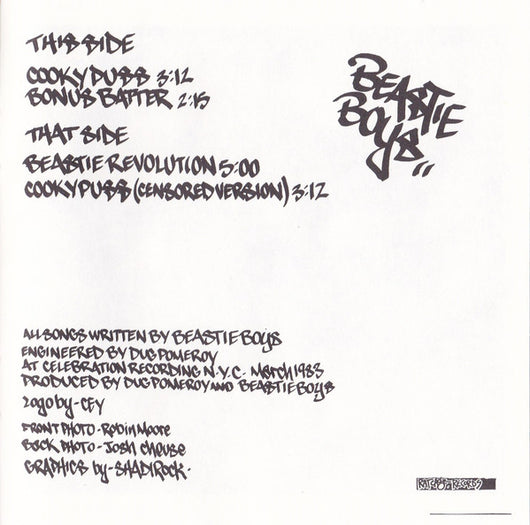 THIS SIDE
COOKY PUSS 3:12
BONUS BATTER 2:15
THAT SIDE
BEASTIE REVOLUTION 5:00
COOKY PUSS (CENSORED VERSION) 3:12
BEASTIE
BOYS
ALL SONGS WRITTEN BY BEASTIE BOYS
ENGINEERED BY DUG POMEROY
AT CELEBRATION RECORDING N.Y.C. March 1983
PRODUCED BY DUG POMEROY AND BEASTIE BOYS
Logo by - CEY
FRONT PHOTO - Robin Moore
BACK PHOTO - Josh Cheuse
GRAPHICS by - SHADI ROCK -
RATCAGE RECORDS